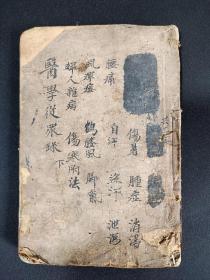 傷暑 腫症 消渴
腰痛 自汗 盜汗 泄瀉
風痺痿 鶴膝風 脚氣
婦人雜病 傷寒附法
醫學從衆錄 下